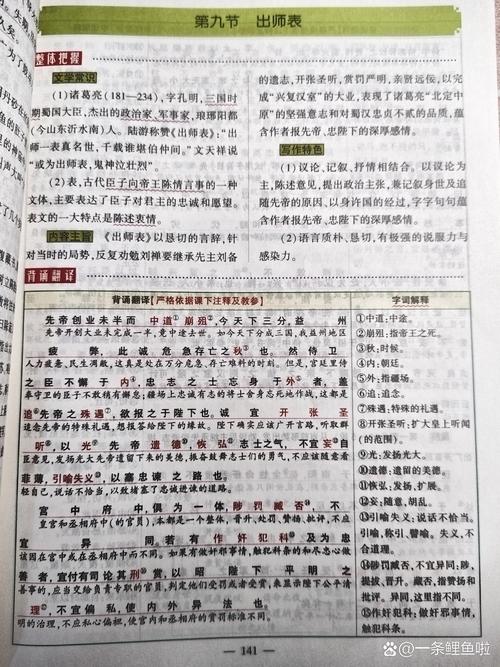 第九节 出师表
整体把握
文学常识
(1)诸葛亮(181—234),字孔明,三国时
期蜀国大臣,杰出的政治家、军事家,琅琊阳都
(今山东沂水南)人。陆游称赞《出师表》:“出
师一表真名世,千载谁堪伯仲间。”文天祥说
“或为出师表,鬼神泣壮烈”。
(2)表,古代臣子向帝王陈情言事的一种
文体,主要表达了臣子对君主的忠诚和愿望。
表文的一大特点是陈述衷情。
内容主旨 《出师表》以恳切的言辞,针
对当时的局势,反复劝勉刘禅要继承先主刘备
的遗志,开张圣听,赏罚严明,亲贤远佞,以完
成“兴复汉室”的大业,表现了诸葛亮“北定中
原”的坚强意志和对蜀汉忠贞不贰的品质,蕴
含作者报先帝、忠陛下的深厚感情。
写作特色
(1)议论、记叙、抒情相结合。以议论为
主,陈述意见,提出政治主张,兼记叙身世及追
随先帝的原因,以身许国的经过,字字句句蕴
含作者报先帝、忠陛下的深厚感情。
(2)语言质朴、恳切,有极强的说服力与
感染力。
背诵翻译
背诵翻译【严格依据课下注释及教参】
先帝创业未半而中道①崩殂②,今天下三分,益州
先帝开创业业未完成一半,竟中途去世,如今天下分成三国,我益州地区
疲弊,此诚危急存亡之秋③也。然侍卫
人力疲惫、民生凋敝,这真是处在万分危急、存亡难料的时刻。但是,宫廷里侍
之臣不懈于内④,忠志之士忘身于外⑤者,盖
奉守卫的臣子不敢稍有懈怠;疆场上忠诚有志的将士舍身忘死地作战,这都是
追⑥先帝之殊遇⑦,欲报之于陛下也。诚宜开张圣
追念先帝的特殊礼遇,想报答给陛下的缘故。陛下确实应该广开言路,听取群
听⑧,以光⑨先帝遗德⑩,恢弘⑪志士之气,不宜妄⑫自
臣意见,发扬光大先帝遗留下来的美德,振奋鼓舞志士们的勇气,不应该随意看
菲薄,引喻失义⑬,以塞忠谏之路也。
轻自己,说话不恰当,以致堵塞了忠诚进谏的道路。
宫中府中,俱为一体,陟罚臧否⑭,不
皇宫和丞相府中(的官员),本都是一个整体,晋升、处罚、赞扬、批评,不应
宜异同。若有作奸犯科⑮及为忠
该因在宫中或在丞相府中而不同。如果有做奸邪事情、触犯科条的和尽忠心做
善者,宜付有司论其刑赏,以昭陛下平明之
善事的,应当交给负责专职的官员,判定他们受罚或者受赏,来显示陛下公平清
理,不宜偏私,使内外异法也。
明的治理,不应私心偏袒,使宫内和丞相府的赏罚标准不同。
字词解释
①中道:中途。
②崩殂:指帝王之死。
③秋:时候。
④内:朝廷。
⑤外:指疆场。
⑥追:追念。
⑦殊遇:特殊的礼遇。
⑧开张圣听:扩大皇上听闻
(的范围)。
⑨光:发扬光大。
⑩遗德:遗留的美德。
⑪恢弘:发扬、扩展。
⑫妄:随意、胡乱。
⑬引喻失义:说话不恰当。
引喻,称引、譬喻。失义,不
合道理。
⑭陟罚臧否,不宜异同:陟,
提拔、晋升。臧否,指赞扬和
批评。异同,这里指不同。
⑮作奸犯科:做奸邪事情,
触犯科条。
141
@一条鲤鱼啦